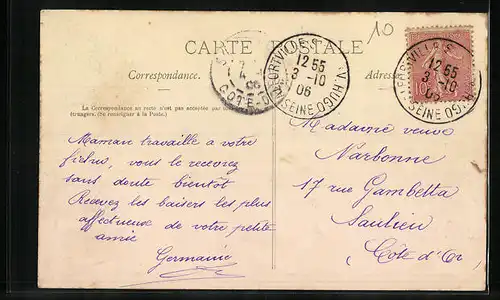 10
CARTE POSTALE
Correspondance.
Adresse
La Correspondance au recto n'est pas acceptée par
étrangers. (Se renseigner à la Poste.)
ALFORTVILLE S. V. HUGO SEINE
12 55
3 -10
06
12 55
3
SEINE
10
COTE-D'OR
06
Maman travaille a votre
fichu, vous le recevrez
sans doute bientôt
Recevez les baisers les plus
affectueux de votre petite
amie
Germaine
Madame veuve
Narbonne
17 rue Gambetta
Saulieu
Côte d'Or